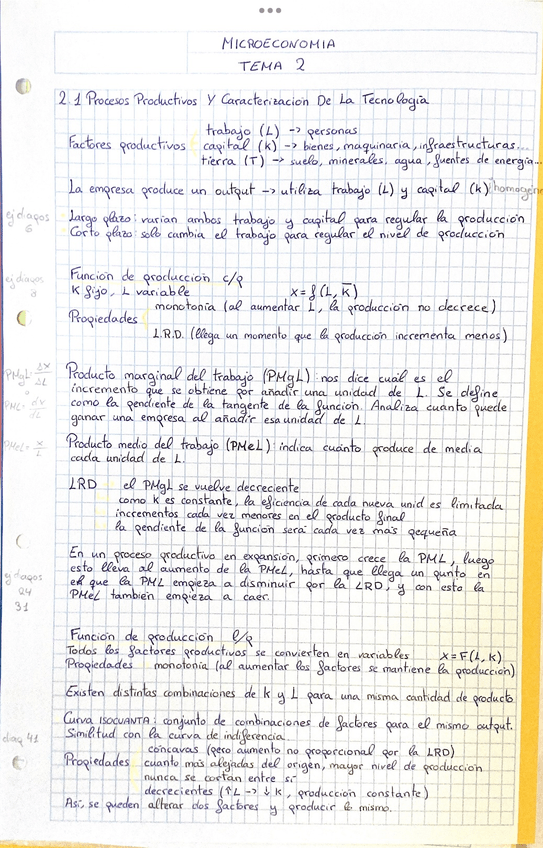 MICROECONOMIA
TEMA 2
2.1 Procesos Productivos Y Caracterizacion De La Tecnología
trabajo (L) -> personas
Factores productivos capital (K) -> bienes, maquinaria, infraestructuras...
tierra (T) -> suelo, minerales, agua, fuentes de energía...
La empresa produce un output -> utiliza trabajo (L) y capital (K) homogéne
ej diapos
6
Largo plazo: varian ambos trabajo y capital para regular la producción
Corto plazo: solo cambia el trabajo para regular el nivel de producción
ej diapos
8
Función de producción c/p
K fijo, L variable x = f (L, K̅)
monotonía (al aumentar L, la producción no decrece)
Propiedades
L.R.D. (llega un momento que la producción incrementa menos)
PMgL = ΔX/ΔL
Producto marginal del trabajo (PMgL): nos dice cuál es el
incremento que se obtiene por añadir una unidad de L. Se define
como la pendiente de la tangente de la función. Analiza cuanto puede
ganar una empresa al añadir esa unidad de L.
PMeL = X/L
Producto medio del trabajo (PMeL): indica cuánto produce de media
cada unidad de L.
LRD el PMgL se vuelve decreciente
como K es constante, la eficiencia de cada nueva unid es limitada
incrementos cada vez menores en el producto final
la pendiente de la función será cada vez más pequeña
ej diapos
24
31
En un proceso productivo en expansión, primero crece la PML, luego
esto lleva al aumento de la PMeL, hasta que llega un punto en
el que la PML empieza a disminuir por la LRD, y con esto la
PMeL también empieza a caer.
Función de producción l/p
Todos los factores productivos se convierten en variables x = F(L, K)
Propiedades monotonía (al aumentar los factores se mantiene la producción)
Existen distintas combinaciones de K y L para una misma cantidad de producto
Curva ISOCUANTA: conjunto de combinaciones de factores para el mismo output.
Similitud con la curva de indiferencia.
diap 41
cóncavas (pero aumento no proporcional por la LRD)
Propiedades cuanto más alejadas del origen, mayor nivel de producción
nunca se cortan entre sí
decrecientes (↑L -> ↓K, producción constante)
Así, se pueden alterar dos factores y producir lo mismo.